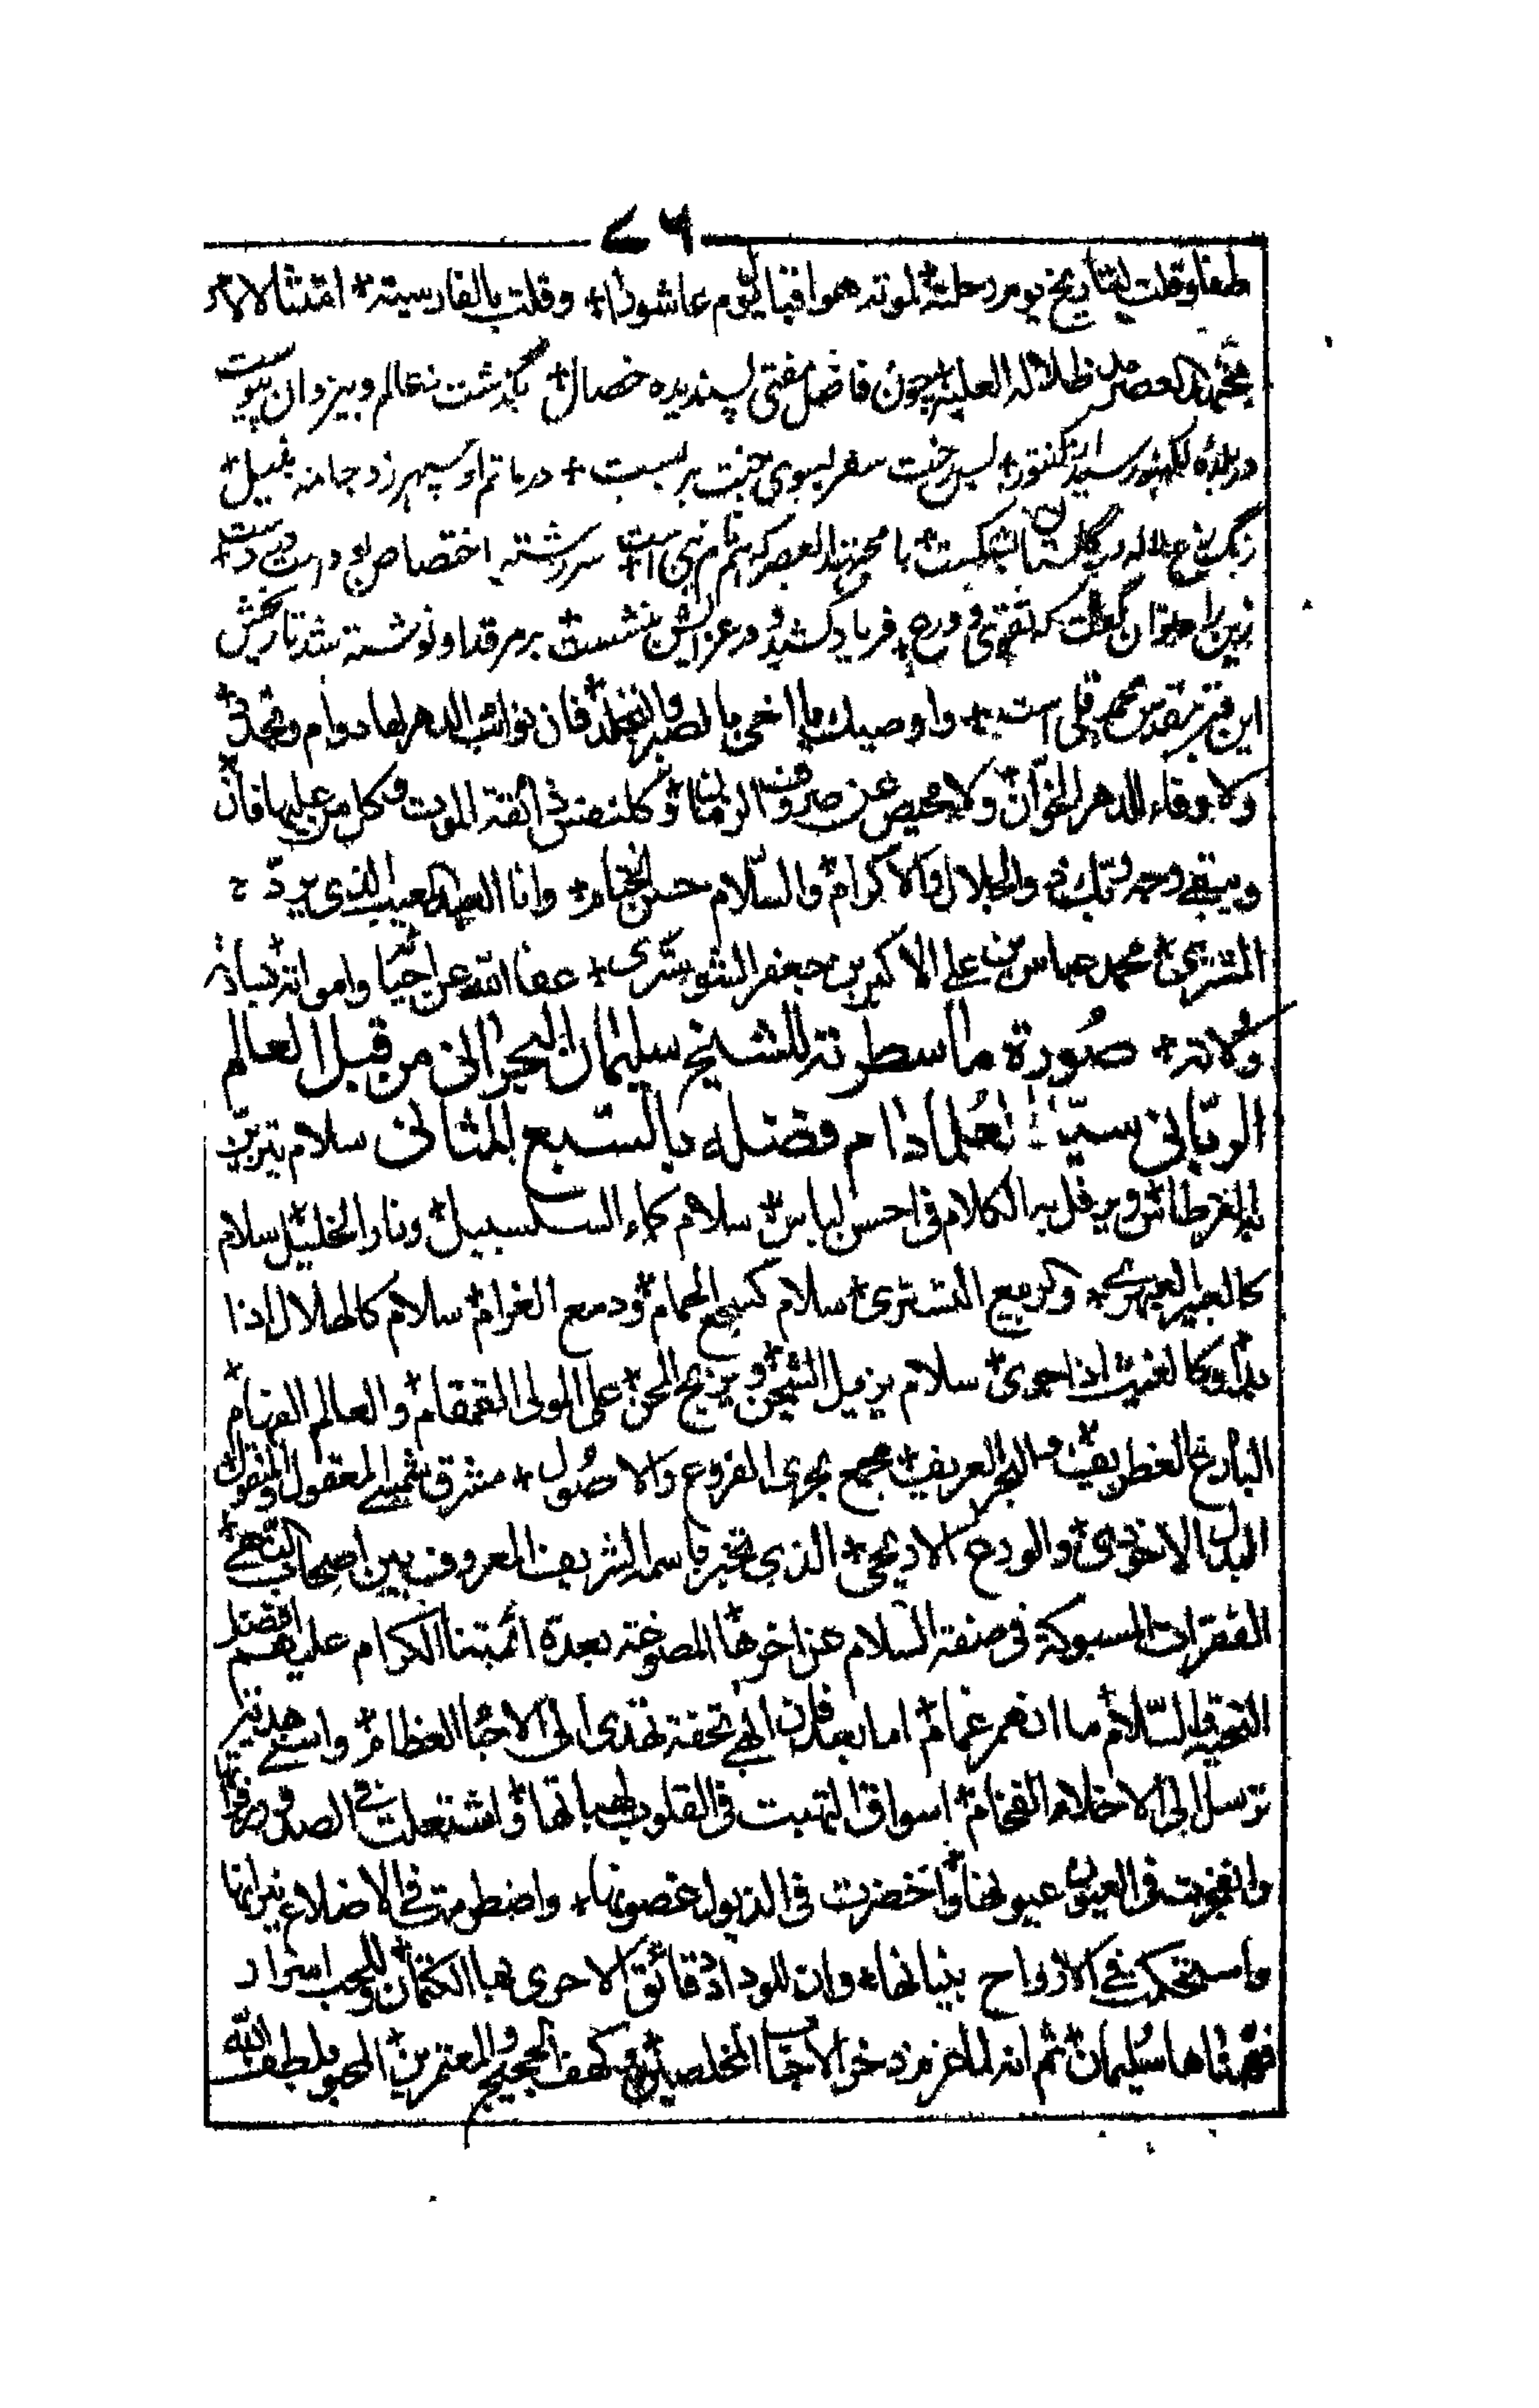 ٧٦
وقلت لتاريخ يوم رحلته لموته موافقا ليوم عاشورا + وقلت بالفارسية + امتثالا لامر
مجتهد العصر مد ظلاله العلية + چون فاضل مفتی پسندیده خصال + بگذشت ز عالم و بیزدان پیوست
در بلده لکهنور رسید از کنتور + پس رخت سفر بسوی جنت بر بست + در ماتم او سپهر زد جامه بنیل +
رنگ رخ لاله در گلستان بشکست + با مجتهد العصر که هم نام نبی است + سر رشته اختصاص بودهست درست +
زین را میتوان گفت که تقوی و ورع + فریاد کشید و در عزایش بنشست + بر مرقد او نوشته شد تاریخش
این قبر مقدس محمد قلی است + واوصيك يا اخي بالصبر والتجلد فان نوائب الدهر لها دوام وتجدد
ولا وفاء للدهر الخوان ولا محيص عن صروف الزمان وكل نفس ذائقة الموت وكل من عليها فان
ويبقى وجه ربك ذو الجلال والاكرام والسلام حسن الختام + وانا العبد المعيب الذي يرد
المشتري محمد عباس بن علي الاكبر بن جعفر الشوشتري + عفا الله عن احيائه وامواته بساداته
وولاته + صورة ما سطرته للشيخ سليمان البحراني من قبل العالم
الرباني سيد العلما دام فضله بالسبع المثاني سلام يتزين
به القرطاس ويرفل به الكلام في احسن لباس + سلام كماء السلسبيل + ونار الخليل + سلام
كالعبير العبهري + وكربيع التستري + سلام كسجع الحمام + ودمع الغرام + سلام كالهلال اذا
بدا وكالغيث اذا جرى + سلام يزيل الشجن + ويزيح المحن + على المولى القمقام + والعالم الفهام +
البارع الغطريف + والبحر العريف + مجمع بحري الفروع والاصول + مشرق شمسي المعقول والمنقول
البدل الاخوذي + والورع الاريحي + الذي تخبر باسمه الشريف المعروف بين اصحاب التاهي +
الفقرات المسبوكة في صنفة السلام عن اخرها المصوغة بعدة ائمتنا الكرام عليهم افضل
التحية والسلام ما انهمر غمام + اما بعد فان ابهى تحفة تهدى الى الاحباء العظام + واسنى هدية
ترسل الى الاخلاء الفخام + اسواق التهبت في القلوب لهباتها + واشتعلت في الصدور زفراتها
وانفجرت في العيون عيونها + واخضرت في الذبول غصونها + واضطرمت في الاضلاع نيرانها
واستحكمت في الارواح بنيانها + وان للوداد دقائق الاحرى بها الكتمان + وللحب اسرار
ففهمناها سليمان + ثم انه لما عزم ذخر الاحباء المخلصين + وكهف الحجيج والمعتمرين + المحبو بلطف الله